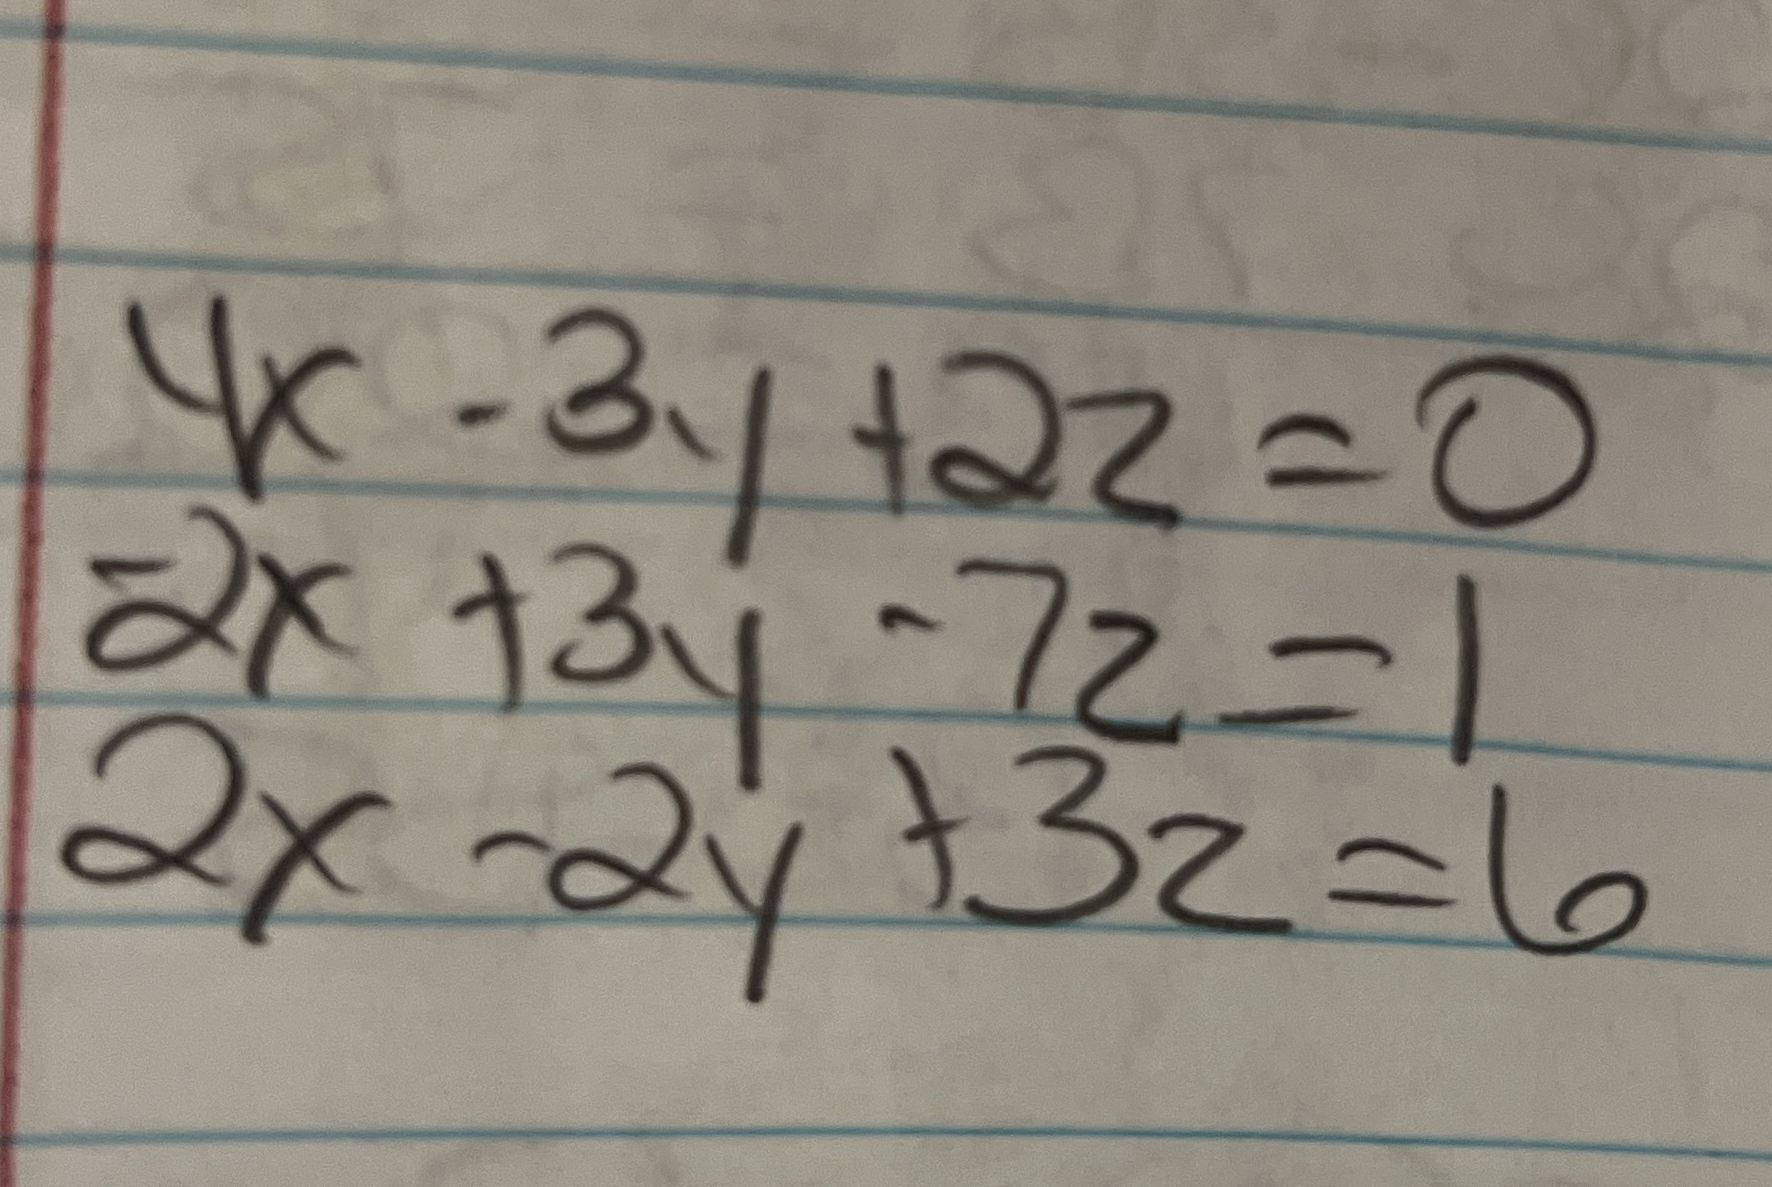 4x - 3y + 2z = 0
-2x + 3y - 7z = 1
2x - 2y + 3z = 6